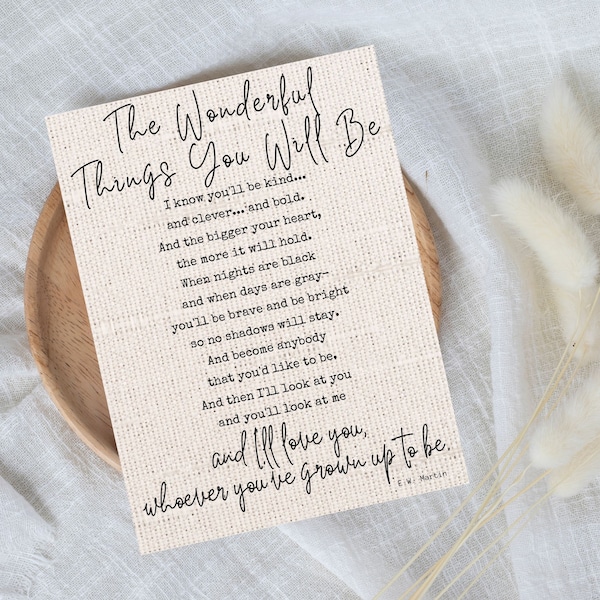 The Wonderful
Things You Will Be
I know you'll be kind...
and clever... and bold.
And the bigger your heart,
the more it will hold.
When nights are black
and when days are gray—
you'll be brave and be bright
so no shadows will stay.
And become anybody
that you'd like to be.
And then I'll look at you
and you'll look at me
and I'll love you,
whoever you've grown up to be.
E.W. Martin